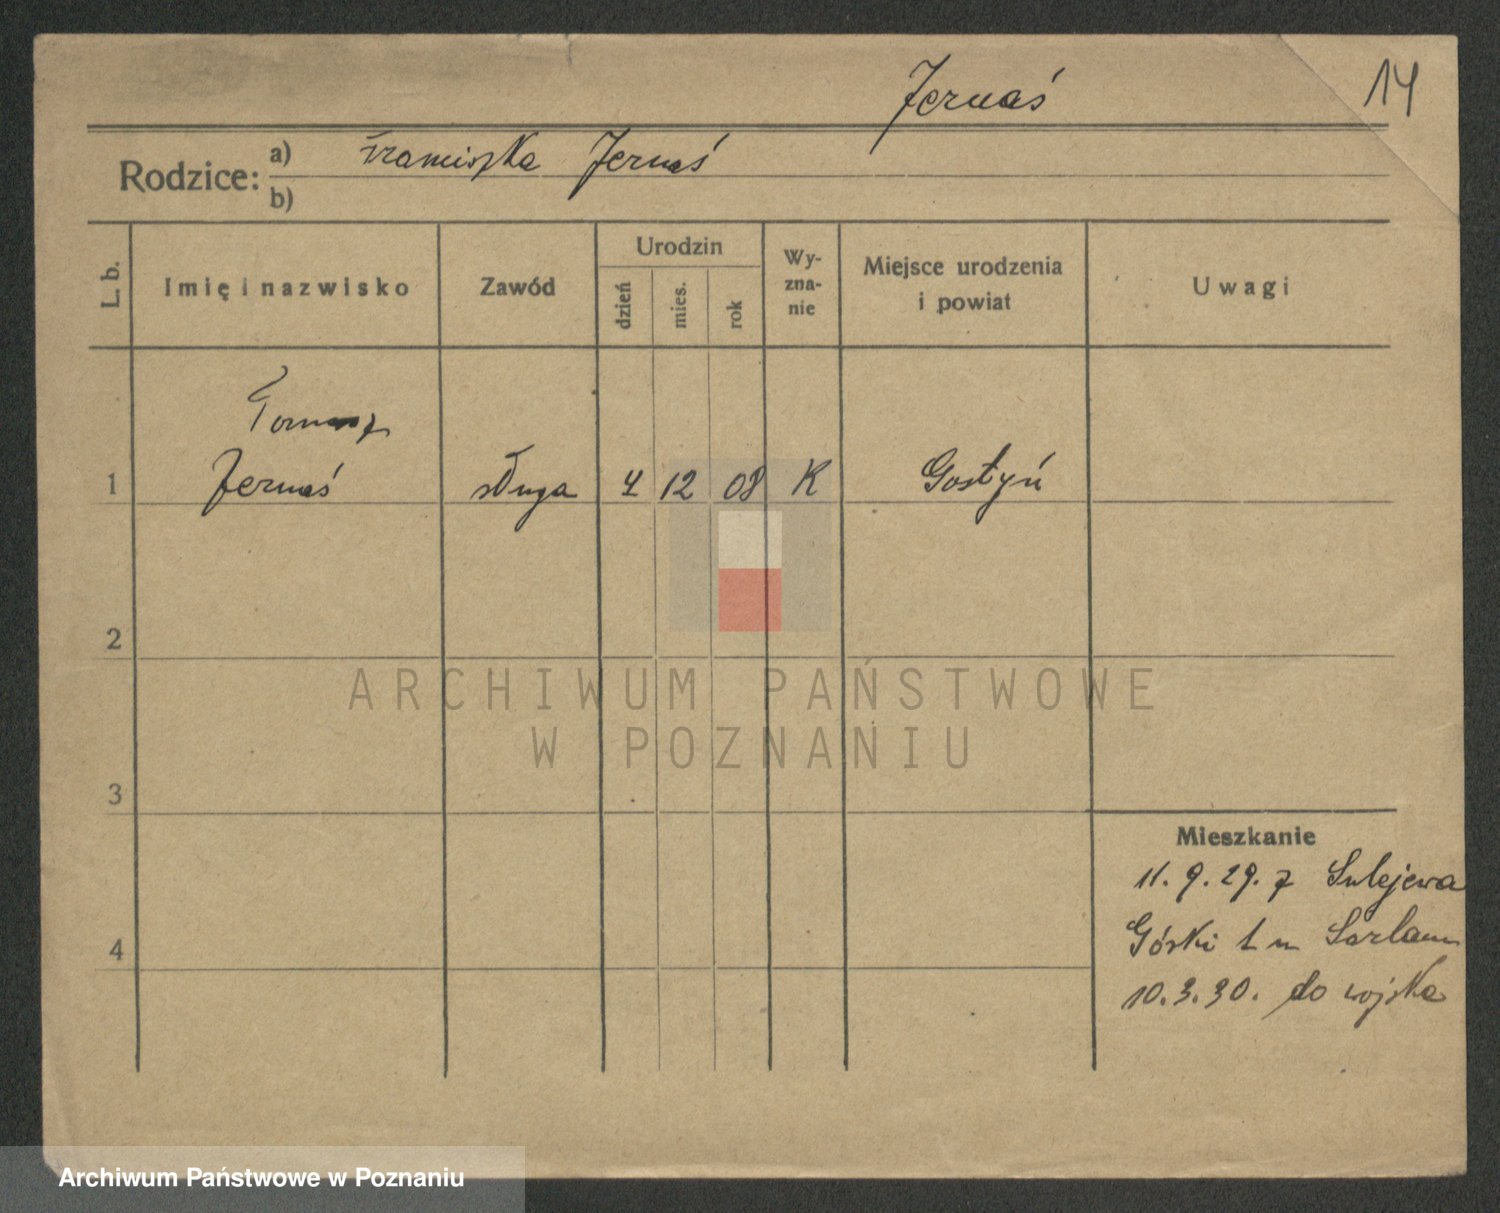 Jernaś
14
Rodzice:
a) Franciszka Jernaś
b)
L. b.
Imię i nazwisko
Zawód
Urodzin
dzień
mies.
rok
Wy-
zna-
nie
Miejsce urodzenia
i powiat
Uwagi
Tomasz
1 Jernaś sługa 4 12 08 K Gostyń
2
3
4
Mieszkanie
11.9.29. z Sulejewa
Górki
10.3.30. do wojska
ARCHIWUM PAŃSTWOWE
W POZNANIU
Archiwum Państwowe w Poznaniu